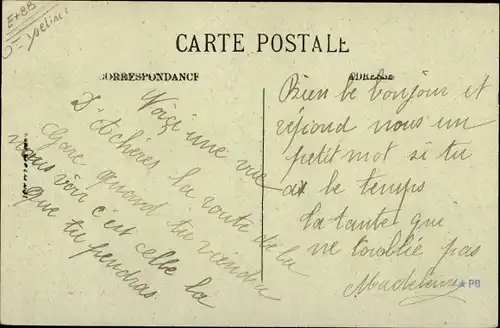 E+8B
Yvelines
CARTE POSTALE
CORRESPONDANCE
ADRESSE
Voiçi une vue
D'Achères la route de la
Gare quand tu viendra
nous voir c'est celle la
que tu prendras
Bien le bonjour et
répond nous un
petit mot si tu
as le temps
la tante qui
ne t'oublie pas
Madeleine
PB